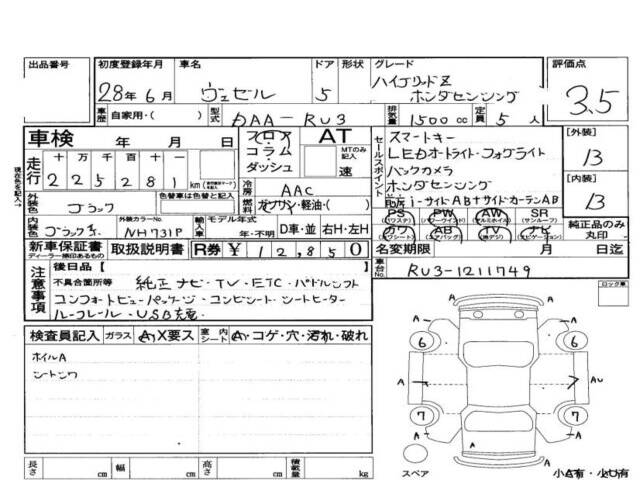 出品番号 初度登録年月 車名 ドア 形状 グレード 評価点
28年6月 ヴェゼル 5 ハイブリッドZ ホンダセンシング 3.5
車歴 自家用・( ) 型式 DAA-RU3 排気量 1500cc 定員 5人
車検 年 月 日 フロア AT セールスポイント スマートキー [外装]
現在を記入→ 走行 十 万 千 百 十 一 コラム MTのみ記入 LEDオートライト・フォグライト 13
225281 km ダッシュ 速 バックカメラ [内装]
冷房 AAC ホンダセンシング 13
外装色 ブラック 色替車は色替と記入 燃料 ガソリン・軽油・( ) i-サイドAB+サイドカーテンAB
PS (パワステ) PW (パワーウインド) AW (アルミホイル) SR (サンルーフ) 純正品のみ丸印
内装色 ブラック系 外装カラーNo. NH731P 輸入車 モデル年式 年・不明 D車・並 右H・左H カワ (カワシート) AB (エアバッグ) TV (地デジ) ナビ (ナビゲーション)
新車保証書 ディーラー捺印あるもの 取扱説明書 R券 ¥12,850 名変期限 月 日迄
注意事項 後日品 [ ] 車台No. RU3-1211749
不具合箇所等 純正ナビ・TV・ETC・パドルシフト ロック車
コンフォートビューパッケージ・コンビシート・シートヒーター
ルーフレール・USB充電
検査員記入 ガラス A X要ス 室内 シート A・コゲ・穴・汚れ・破れ
ホイルA
シートシワ
A 6 6 A
A AU
A 7 7 A
スペア 小A有・小U有
長さ cm 幅 cm 高さ cm 積載量 kg